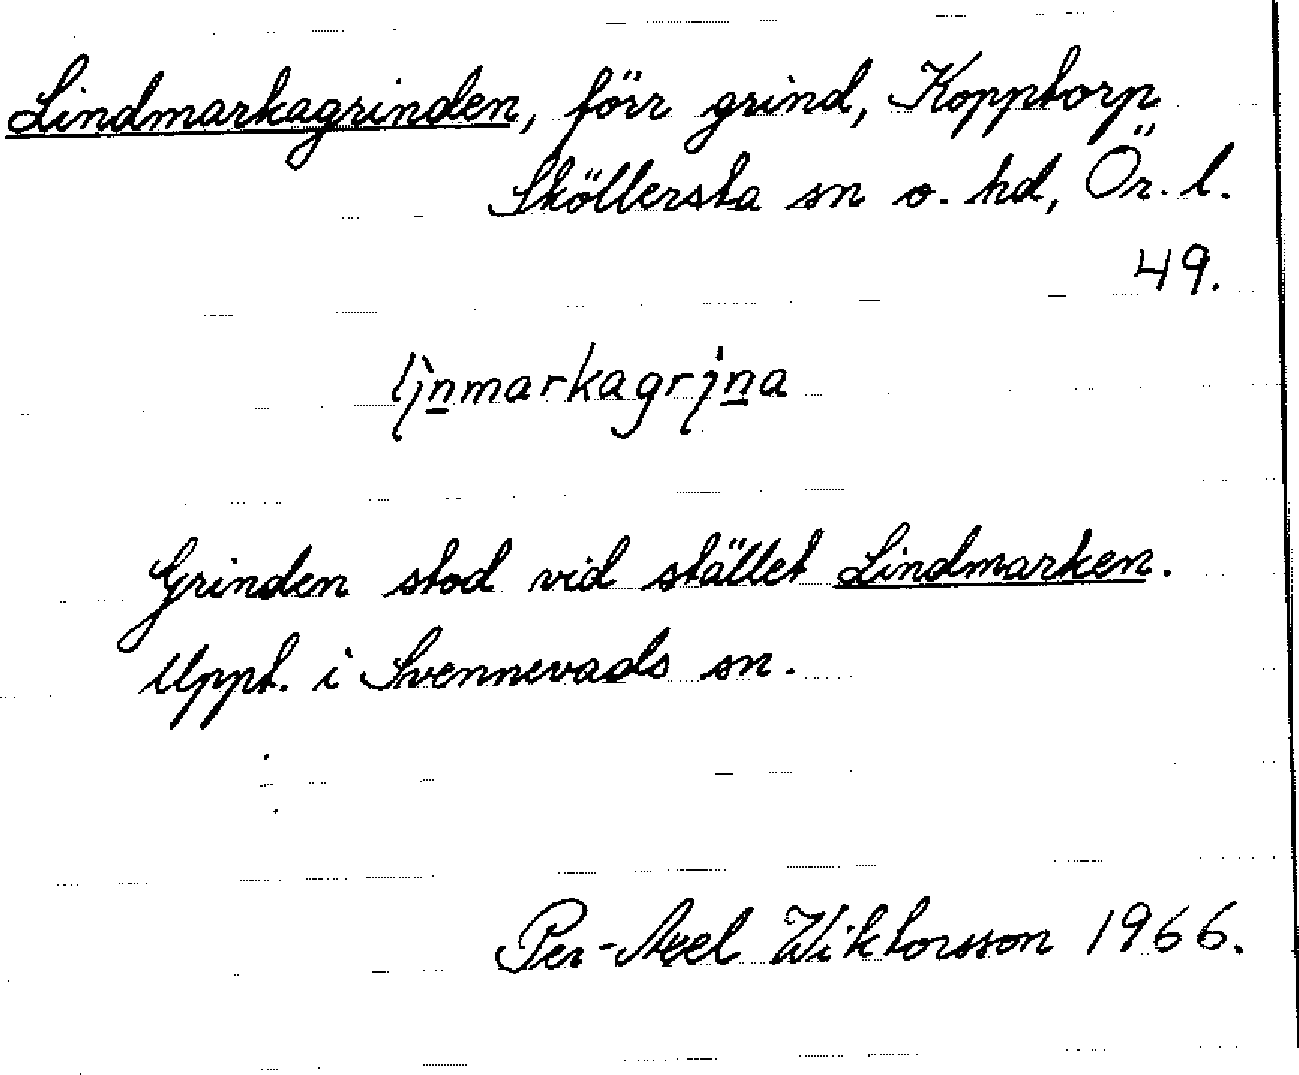 Lindmarkagrinden, förr grind, Kopptorp
Sköllersta sn o. hd, Ör. l.
49.
lı̀nmarkagrı́na
Grinden stod vid stället Lindmarken.
Uppt. i Svennevads sn.
Per-Axel Wiktorsson 1966.